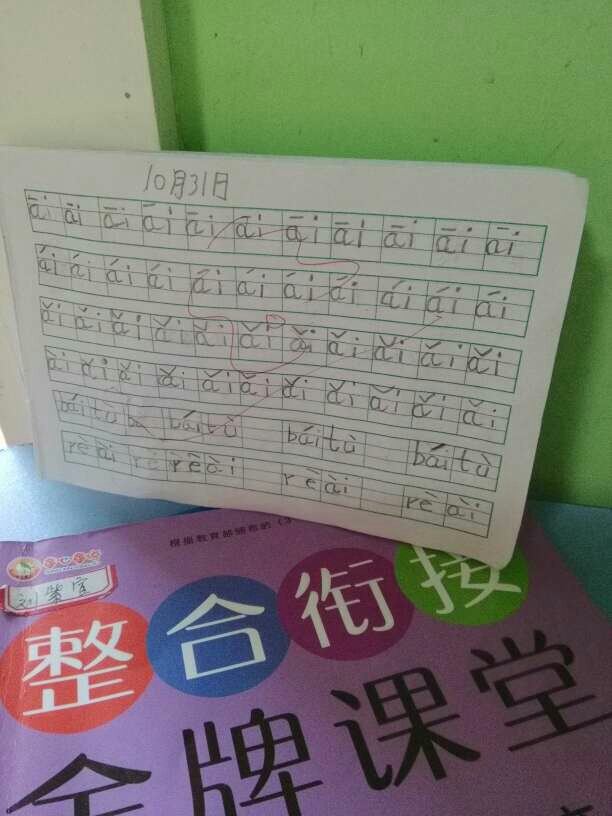 10月31日
āi āi āi āi āi āi āi āi āi āi āi
ái ái ái ái ái ái ái ái ái ái ái
ǎi ǎi ǎi ǎi ǎi ǎi ǎi ǎi ǎi ǎi ǎi
ài ǎi ǎi ǎi ǎi ǎi ǎi ǎi ǎi ǎi ǎi
bái tù bái tù bái tù bái tù
rè ài rè rè ài rè ài rè ài
根据教育部颁布的
整合衔接
金牌课堂